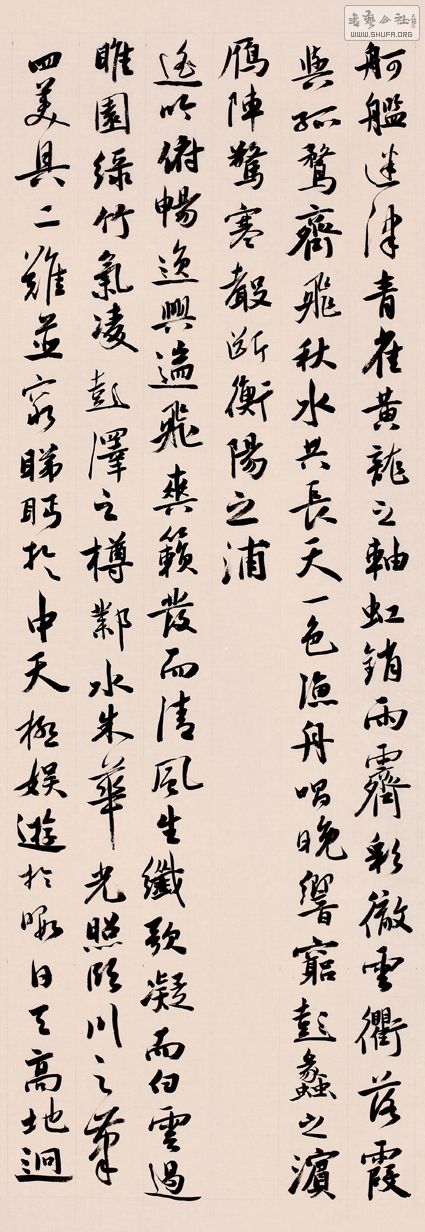 舸艦迷津青雀黃龍之軸虹銷雨霽彩徹雲衢落霞
與孤鶩齊飛秋水共長天一色漁舟唱晚響窮彭蠡之濱
鴈陣驚寒聲斷衡陽之浦
遙吟俯暢逸興遄飛爽籟發而清風生纖歌凝而白雲遏
睢園綠竹氣凌彭澤之樽鄴水朱華光照臨川之筆
四美具二難並窮睇眄於中天極娛遊於暇日天高地迥
書藝公社
WWW.SHUFA.ORG